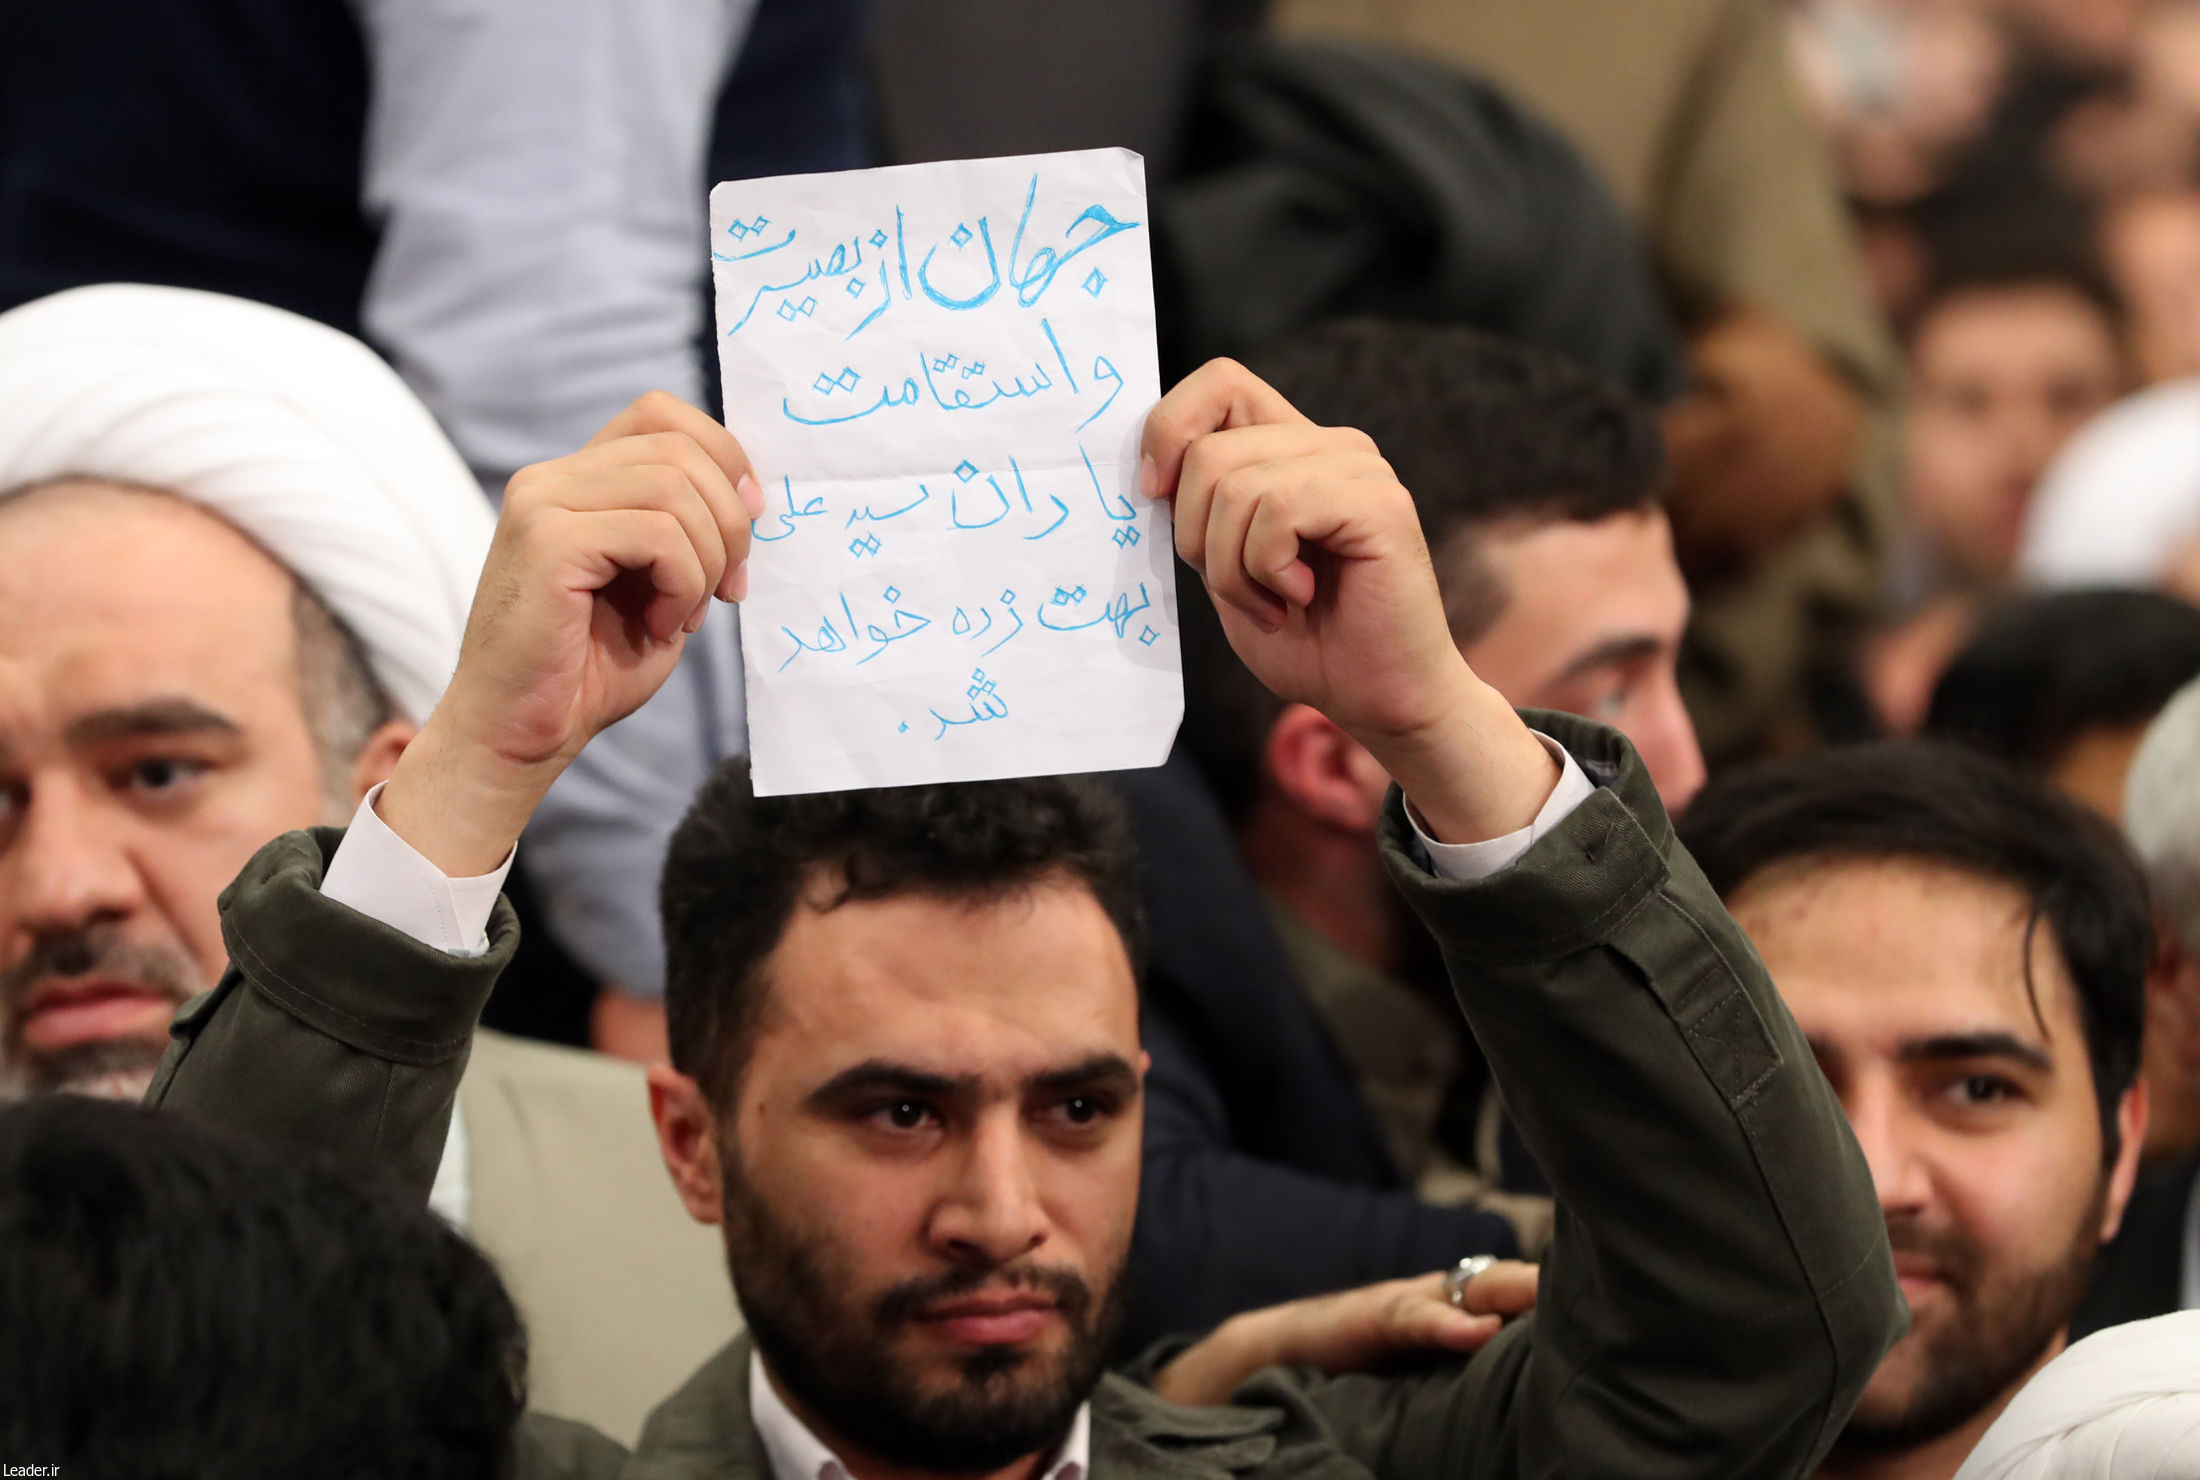 جهان از بصیرت
و استقامت
یاران سید علی
بهت زده خواهد
شد.
Leader.ir